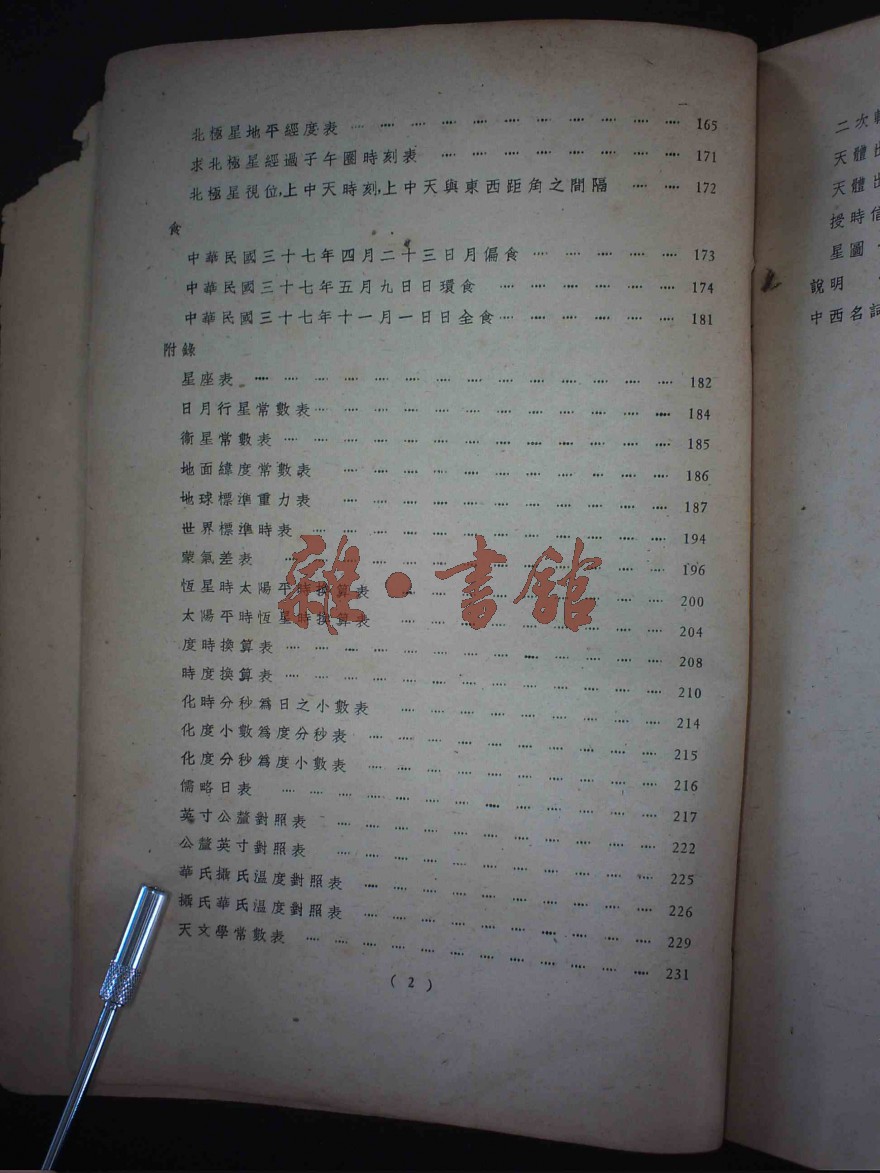 北極星地平經度表 165
求北極星經過子午圈時刻表 171
北極星視位,上中天時刻,上中天與東西距角之間隔 172
食
中華民國三十七年四月二十三日月偏食 173
中華民國三十七年五月九日日環食 174
中華民國三十七年十一月一日日全食 181
附錄
星座表 182
日月行星常數表 184
衛星常數表 185
地面緯度常數表 186
地球標準重力表 187
世界標準時表 194
蒙氣差表 196
恆星時太陽平時換算表 200
太陽平時恆星時換算表 204
度時換算表 208
時度換算表 210
化時分秒爲日之小數表 214
化度小數爲度分秒表 215
化度分秒爲度小數表 216
儒略日表 217
英寸公釐對照表 222
公釐英寸對照表 225
華氏攝氏溫度對照表 226
攝氏華氏溫度對照表 229
天文學常數表 231
(2)
雜·書館
二次
天體
天體
授時信
星圖
說明
中西名詞